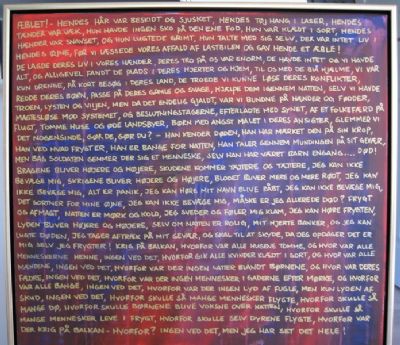 ÆBLET!- HENDES HÅR VAR BESKIDT OG SJUSKET, HENDES TØJ HANG I LASER, HENDES
TÆNDER VAR VÆK, HUN HAVDE INGEN SKO PÅ DEN ENE FOD, HUN VAR KLÆDT I SORT, HENDES
HÆNDER VAR SNAVSET, OG HUN LUGTEDE GRIMT, HUN TALTE MED SIG SELV, DER VAR INTET LIV I
HENDES ØJNE, FØR VI LÆSSEDE VORES AFFALD AF LASTBILEN OG GAV HENDE ET ÆBLE!
DE LAGDE DERES LIV I VORES HÆNDER, DERES TRO PÅ OS VAR ENORM, DE HAVDE INTET OG VI HAVDE
ALT, OG ALLIGEVEL FANDT DE PLADS I DERES HJERTER OG HJEM, TIL OS MED DE BLÅ HJELME, VI VAR
KUN DRENGE, PÅ KORT BESØG I DERES LAND, DE TROEDE VI KUNNE LØSE DERES KONFLIKTER,
REDDE DERES BØRN, PASSE PÅ DERES GAMLE OG SVAGE, HJÆLPE DEM IGENNEM NATTEN, SELV VI HAVDE
TROEN, LYSTEN OG VILJEN, MEN DA DET ENDELIG GJALDT, VAR VI BUNDNE PÅ HÆNDER OG FØDDER,
MAGTESLØSE MOD SYSTEMET, OG BESLUTNINGSTAGERNE, EFTERLADTE MED SYNET, AF ET FOLKEFÆRD PÅ
FLUGT, TOMME HUSE OG ØDE LANDSBYER, BØRN MED ANGST MALET I DERES ANSIGTER, GLEMMER VI
DET NOGENSINDE, GØR DE, GØR DU? - HAN KENDER DØDEN, HAN HAR MÆRKET DEN PÅ SIN KROP,
HAN VED HVAD FRYGT ER, HAN ER BANGE FOR NATTEN, HAN TALER GENNEM MUNDINGEN PÅ SIT GEVÆR,
MEN BAG SOLDATEN GEMMER DER SIG ET MENNESKE, SELV HAN HAR VÆRET BARN ENGANG.... DØD!
BRAGENE BLIVER HØJERE OG HØJERE, SKUDENE KOMMER TÆTTERE OG TÆTTERE JEG KAN IKKE
BEVÆGE MIG, SKRIGENE BLIVER HØJERE OG HØJERE, BLODET BLIVER MERE OG MERE RØDT, JEG KAN
IKKE BEVÆGE MIG, ALT ER PANIK, JEG KAN HØRE MIT NAVN BLIVE RÅBT, JEG KAN IKKE BEVÆGE MIG,
DET SORTNER FOR MINE ØJNE, JEG KAN IKKE BEVÆGE MIG, MÅSKE ER JEG ALLEREDE DØD? FRYGT
OG AFMAGT, NATTEN ER MØRK OG KOLD, JEG SVEDER OG FØLER MIG KLAM, JEG KAN HØRE FRYGTEN,
LYDEN BLIVER HØJERE OG HØJERE, SELV OM NATTEN ER ROLIG, MIT HJERTE BANKER, OG JEG KAN
LUGTE DØDEN, JEG TAGER AFTREK PÅ MIT GEVÆR, OG SKAL TIL AT SKYDE, DA DET OPDAGER DET ER
MIG SELV JEG FRYGTER! KRIG PÅ BALKAN, HVORFOR VAR ALLE HUSENE TOMME, OG HVOR VAR ALLE
MENNESKERNE HENNE, INGEN VED DET, HVORFOR GIK ALLE KVINDER KLÆDT I SORT, OG HVOR VAR ALLE
MÆNDENE, INGEN VED DET, HVORFOR VAR DER INGEN LATTER BLANDT BØRNENE, OG HVOR VAR DERES
FÆDRE, INGEN VED DET, HVORFOR VAR DER INGEN MENNESKER I GADERNE EFTER MØRKE, OG HVORFOR
VAR ALLE BANGE, INGEN VED DET, HVORFOR VAR DER INGEN LYD AF FUGLE, MEN KUN LYDEN AF
SKUD, INGEN VED DET, HVORFOR SKULLE SÅ MANGE MENNESKER FLYGTE, HVORFOR SKULLE SÅ
MANGE DØ, HVORFOR SKULLE BØRNENE BLIVE VOKSNE OVER NATTEN, HVORFOR SKULLE SÅ
MANGE MENNESKER LEVE I FRYGT, HVORFOR SKULLE SELV DYRENE FLYGTE, HVORFOR VAR
DER KRIG PÅ BALKAN - HVORFOR? INGEN VED DET, MEN JEG HAR SET DET HELE!